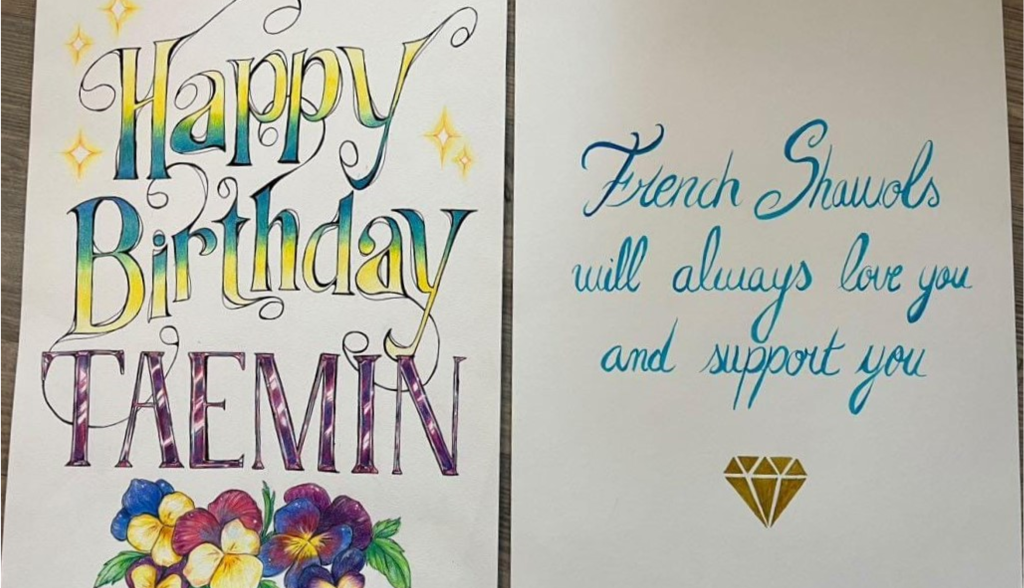 Happy
Birthday
TAEMIN
French Shawols
will always love you
and support you